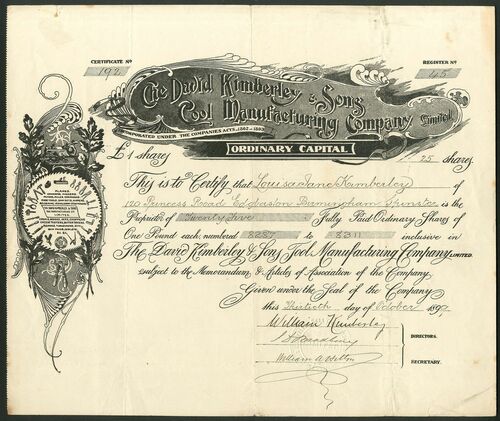 CERTIFICATE No
192
REGISTER No
45
The David Kimberley & Sons
Tool Manufacturing Company Limited
INCORPORATED UNDER THE COMPANIES ACTS, 1862 1893
ORDINARY CAPITAL
£1 shares
25 shares
This is to Certify that Louisa Jane Kimberley of
120 Princess Road Edgbaston Birmingham Spinster is the
Proprietor of Twenty five Fully Paid Ordinary Shares of
One Pound each, numbered 8287 to 8311 inclusive in
The David Kimberley & Sons Tool Manufacturing Company LIMITED.
subject to the Memorandum, & Articles of Association of the Company.
Given under the Seal of the Company
this Thirtieth day of October 189
William Kimberley
DIRECTORS.
William A
SECRETARY.